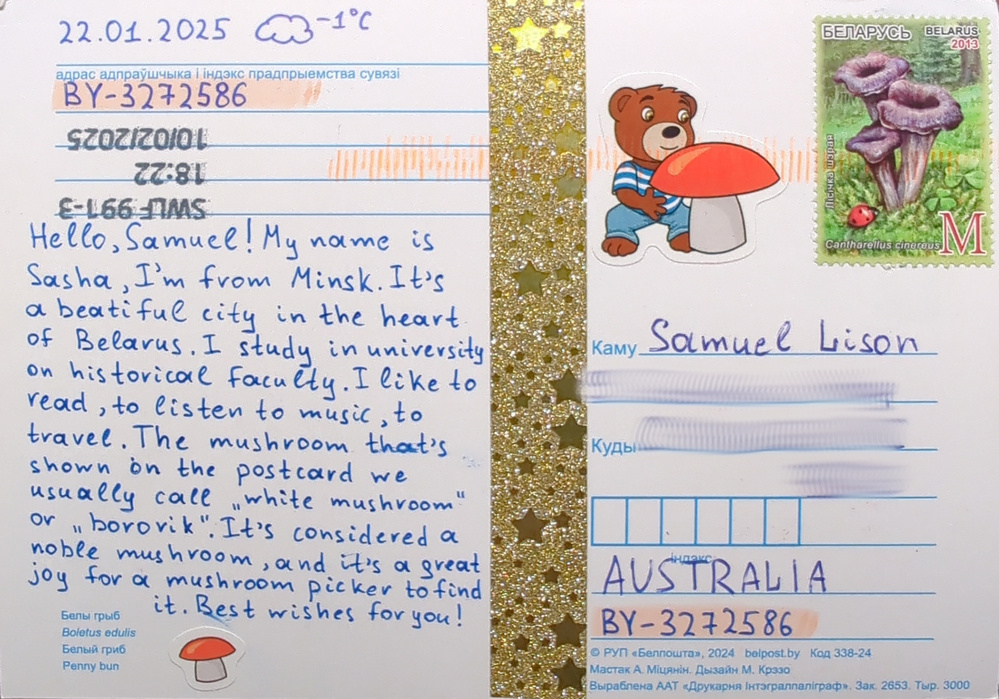 22.01.2025 -1°C
адрас адпраўшчыка і індэкс прадпрыемства сувязі
BY-3272586
10/02/2025
18:22
SWLF 991-3
Hello, Samuel! My name is
Sasha, I'm from Minsk. It's
a beatiful city in the heart
of Belarus. I study in university
on historical faculty. I like to
read, to listen to music, to
travel. The mushroom that's
shown on the postcard we
usually call „white mushroom"
or „borovik". It's considered a
noble mushroom, and it's a great
joy for a mushroom picker to find
it. Best wishes for you!
Белы грыб
Boletus edulis
Белый гриб
Penny bun
БЕЛАРУСЬ BELARUS
2013
Лісічка шэрая
Cantharellus cinereus
M
Каму Samuel Lison
Куды
індэкс
AUSTRALIA
BY-3272586
© РУП «Белпошта», 2024 belpost.by Код 338-24
Мастак А. Міцянін. Дызайн М. Крэзо
Выраблена ААТ «Друкарня Інтэгралпаліграф». Зак. 2653. Тыр. 3000